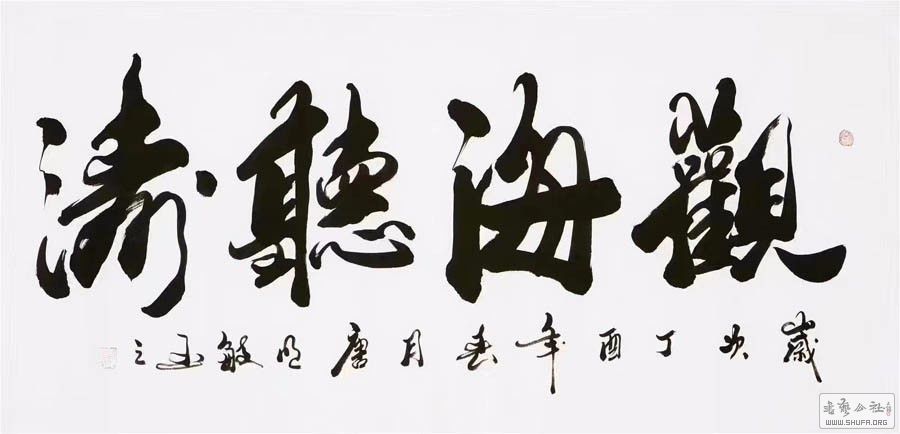 觀海聽濤
歲次丁酉年春月唐明敏之
書藝公社
WWW.SHUFA.ORG